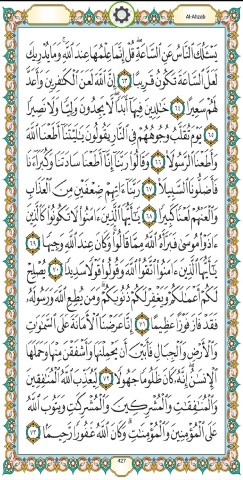 Al-Ahzab
يَسْـَٔلُكَ ٱلنَّاسُ عَنِ ٱلسَّاعَةِ ۖ قُلْ إِنَّمَا عِلْمُهَا عِندَ ٱللَّهِ ۚ وَمَا يُدْرِيكَ
لَعَلَّ ٱلسَّاعَةَ تَكُونُ قَرِيبًا ٦٣ إِنَّ ٱللَّهَ لَعَنَ ٱلْكَـٰفِرِينَ وَأَعَدَّ
لَهُمْ سَعِيرًا ٦٤ خَـٰلِدِينَ فِيهَآ أَبَدًا ۖ لَّا يَجِدُونَ وَلِيًّا وَلَا نَصِيرًا
٦٥ يَوْمَ تُقَلَّبُ وُجُوهُهُمْ فِى ٱلنَّارِ يَقُولُونَ يَـٰلَيْتَنَآ أَطَعْنَا ٱللَّهَ
وَأَطَعْنَا ٱلرَّسُولَا۠ ٦٦ وَقَالُوا۟ رَبَّنَآ إِنَّآ أَطَعْنَا سَادَتَنَا وَكُبَرَآءَنَا
فَأَضَلُّونَا ٱلسَّبِيلَا۠ ٦٧ رَبَّنَآ ءَاتِهِمْ ضِعْفَيْنِ مِنَ ٱلْعَذَابِ
وَٱلْعَنْهُمْ لَعْنًا كَبِيرًا ٦٨ يَـٰٓأَيُّهَا ٱلَّذِينَ ءَامَنُوا۟ لَا تَكُونُوا۟ كَٱلَّذِينَ
ءَاذَوْا۟ مُوسَىٰ فَبَرَّأَهُ ٱللَّهُ مِمَّا قَالُوا۟ ۚ وَكَانَ عِندَ ٱللَّهِ وَجِيهًا ٦٩
يَـٰٓأَيُّهَا ٱلَّذِينَ ءَامَنُوا۟ ٱتَّقُوا۟ ٱللَّهَ وَقُولُوا۟ قَوْلًا سَدِيدًا ٧٠ يُصْلِحْ
لَكُمْ أَعْمَـٰلَكُمْ وَيَغْفِرْ لَكُمْ ذُنُوبَكُمْ ۗ وَمَن يُطِعِ ٱللَّهَ وَرَسُولَهُۥ
فَقَدْ فَازَ فَوْزًا عَظِيمًا ٧١ إِنَّا عَرَضْنَا ٱلْأَمَانَةَ عَلَى ٱلسَّمَـٰوَٰتِ
وَٱلْأَرْضِ وَٱلْجِبَالِ فَأَبَيْنَ أَن يَحْمِلْنَهَا وَأَشْفَقْنَ مِنْهَا وَحَمَلَهَا
ٱلْإِنسَـٰنُ ۖ إِنَّهُۥ كَانَ ظَلُومًا جَهُولًا ٧٢ لِّيُعَذِّبَ ٱللَّهُ ٱلْمُنَـٰفِقِينَ
وَٱلْمُنَـٰفِقَـٰتِ وَٱلْمُشْرِكِينَ وَٱلْمُشْرِكَـٰتِ وَيَتُوبَ ٱللَّهُ
عَلَى ٱلْمُؤْمِنِينَ وَٱلْمُؤْمِنَـٰتِ ۗ وَكَانَ ٱللَّهُ غَفُورًا رَّحِيمًۢا ٧٣
427